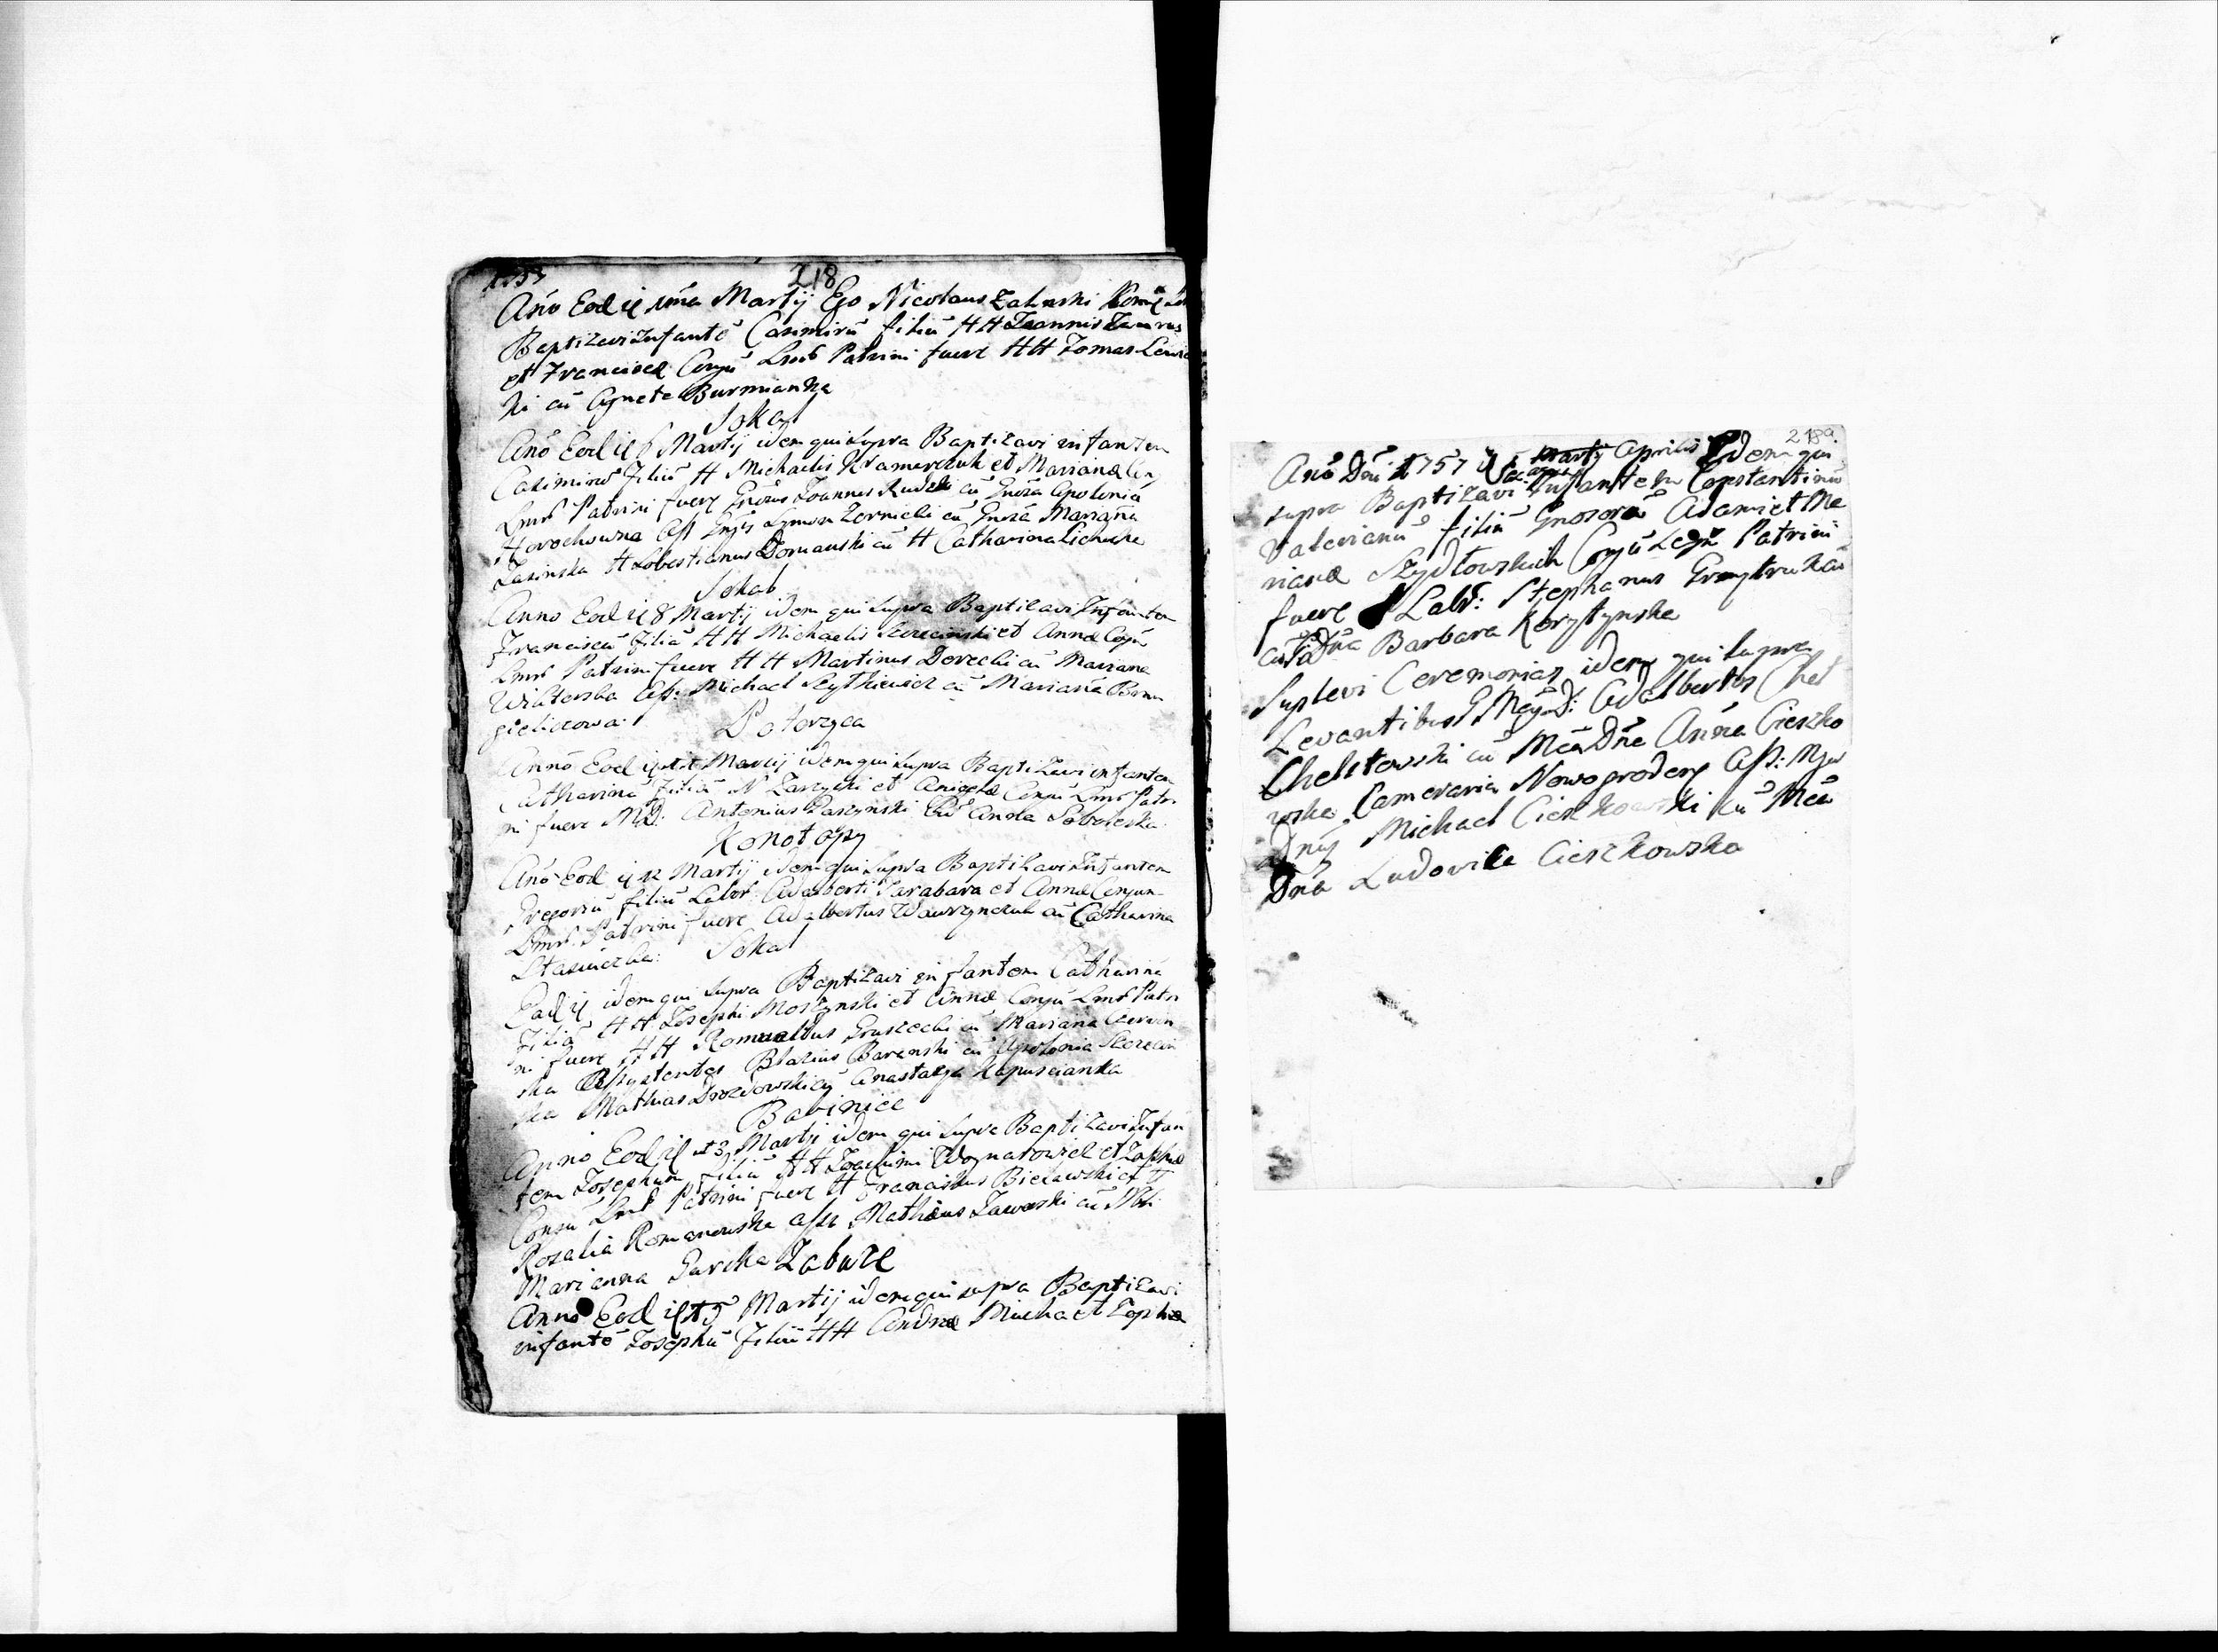 1757
218
Anō Eod ij 1ma Martij Ego Nicolaus Zaluski
Baptizavi Infantē Casimirū filiū HH Ioannis
et Franciscæ Conjū Lmb Patrini fuere HH Tomas
ki cū Agnete Burmianka
Sokal
Anō Eod ij 6 Martij idem qui supra Baptizavi infantem
Casimirū Filiū H Michaelis Kramarczuk et Marianæ Con
Lmb Patrini fuere Gnosus Ioannes Rudzki cū Gnosa Apolonia
Horochowna Ass Gnss Symon Zernicki cū Gnosa Mariana
Zasinska H Sobestianus Domanski cū H Catharina
Sokal
Anno Eod ij 8 Martij idem qui supra Baptizavi Infantem
Franciscū filiū HH Michaelis et Annæ Conjū
Lmb Patrini fuere HH Martinus Dorecki cū Mariana
Ass: Michael Scythiewicz cū Mariana
gielitzowa:
Poturzyca
Anno Eod ij Martij idem qui supra Baptizavi infantem
Catharinā Filiā N Zarzycki et Conjū Lmb Patri
ni fuere MD: Antonius Paszynski Anna
Konotopy
Anō Eod ij 12 Martij idem qui supra Baptizavi Infantem
Gregoriū filiū Labor: Adalberti Sarabara et Annæ Conjun
Lmb. Patrini fuere Adalbertus Wawrzynczuk cū Catharina
Stasiuczka: Sokal
Eod ij idem qui supra Baptizavi infantem Catharinā
Filiā HH Iosephi Moszynski et Annæ Conjū Lmb Patri
ni fuere HH Romualdus Gruszecki cū Mariana Czerwin
ska Assystentes Blasius Baranski cū Apolonia
ska Mathias Drozdowski cū Anastazya Kapuscianka
Babinice
Anno Eod ij 13 Martij idem qui supra Baptizavi Infan
tem Iosephum filiū HH Ioachimi Woynarowicz et Zophiæ
Conju Lmb Patrini fuere H Franciskus Bielawski et H
Rosalia Romanowska Ass Mathæus Zawaski cū
Marianna Gurska Zabuze
Anno Eod ij 15 Martij idem qui supra Baptizavi
infantē Iosephū Filiū HH Andreæ Micha et Zophiæ
218a
Anō Dni 1757 Martij Aprilis Idem qui
supra Baptizavi Infantem Constantinū
Valerianū filiū Gnosorū Adami et Ma
rianæ Szydłowskich Conjū Legū Patrini
fuere Labr: Stephanus
cū Barbara Korytynska
Suplevi Ceremonias idem qui supra
Levantibus Adalbertus Chel
Chelstowski cū Mca Dña Anna Cieszko
wska Cameraria Nowogrodens Ass:
Dnus Michael Cieszkowski cū Mca
Dña Ludovika Cieszkowska